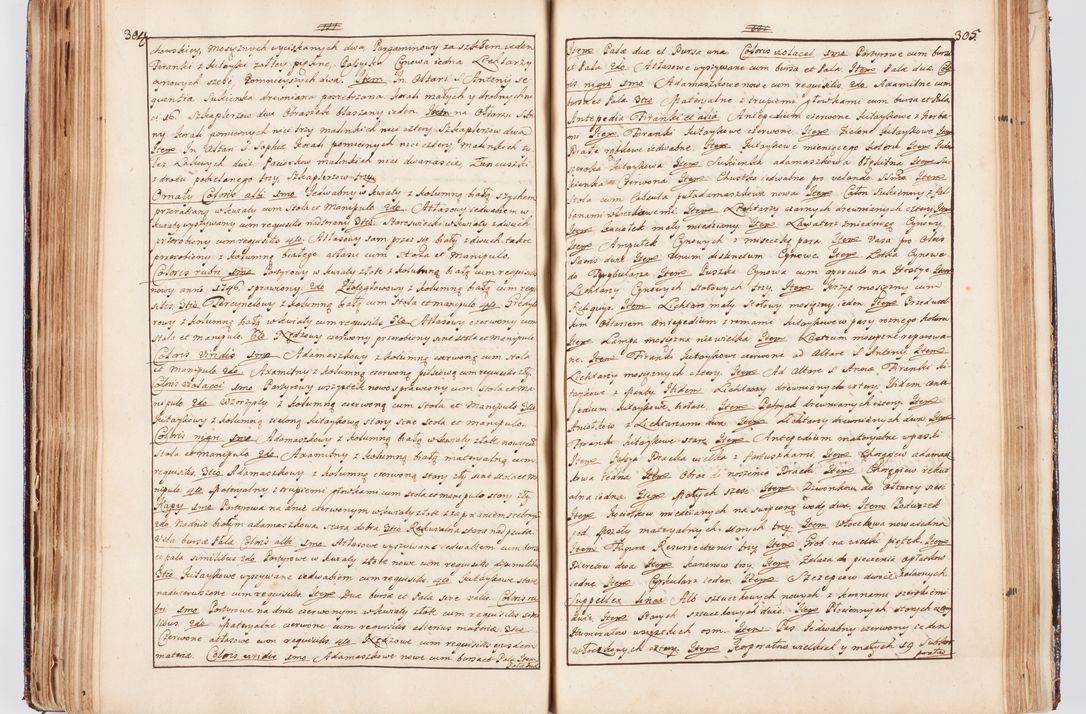 304
chowskiey, Mosięznych wyciskanych dwa, Pargaminowy za szkłem ieden
Firanki z kitayki zołtey piękne, Pasyika Cynowa iedna Lichtarzy
cynowych sześć, Pomnieyszych dwa. Item In Oltari S. Antonij se
quentia Sukienka drewniana posrebrzana. Korali małych y drobnych ni
ci 16 Szkaplerzow dwa Obrazek blaszany ieden. Item na Ołtarzu S.
ny Korali pomiernych nici trzy malinkich nici cztery Szkaplerzow dwa
Item In Altari S. Sophiæ Korali pomiernych nici cztery Malinkich
Lakowych dwie Paciorkow malinkich nici dwanascie, Łancuszki
z drotu pobielanego trzy, Szkaplerzow trzy.
Ornaty Coloris albi 1mo Jedwabny w kwiaty z kolumną białą szychem
przerabianą w kwiaty cum Stola et Manipulo. 2do Atłasowy iedwabiem w
kwiaty wyszywany cum requisitis nadstarony 3tio Staroswiecki w kwiaty z dwuch
przerobiony cum requisitis 4to Atłasowy sam przez się biały z dwuch takoż
przerobiony z kolumną białego atłasu cum Stola et Manipulo.
Coloris rubri 1mo Partyrowy w kwiaty złote z kolumną białą cum requisitis
nowy anno 1746 sprawiony 2do Złotogłowowy z kolumną białą cum requi
sitis. 3tio Tercynelowy z kolumną białą cum Stola et manipulo 4to Gredytu
rowy z kolumną białą w kwiaty cum requisitis 5to Atłasowy czerwony cum
Stola et manipulo. 6to Kędzowy czerwony przerobiony sine stola et manipulo
Coloris viridis 1mo Adamaszkowy z kolumną czerwoną cum stola
et Manipulo 2do Axamitny z kolumną czerwoną pilsiową cum requisitis zły
Coloris violacei 1mo Partyrowy wszystek nowo sprawiony cum Stola et Ma
nipulo. 2do Wzorzysty z kolumną czerwoną cum Stola et Manipulo 3tio
Kitaykowy z kolumną zieloną kitaykową stary sine Stola et manipulo.
Coloris nigri 1mo Adamaszkowy z kolumną białą w kwiaty złote nowy cum
Stola et manipulo. 2do Axamitny z kolumną białą materyalną cum
requisitis 3tio Adamaszkowy z kolumną czerwoną stary zły sine stola et Ma
nipulo. 4to Materyalny z trupiemi głowkami cum stola et manipulo stary zły
Kapy 1mo Partyrowa na dnie czerwonym w kwiaty złote z zapraniem srebrny
2do Na dnie białym adamaszkowa stara dobra 3tio Rekwialna stara nadpsuta
Vela bursæ Palæ Coloris albi 1mo Atłasowe wyszywane iedwabiem cum bursa
et pala similibus 2do Partyrowe w kwiaty złote nowe cum requisitis similibus
3tio Kitaykowe wyszywane iedwabiem cum requisitis 4to Kitaykowe stare
nadwerężone cum requisitis. Item Duæ bursæ et Palæ sine velis. Coloris ru
bri 1mo Partyrowe na dnie czerwonym w kwiaty złote cum requisitis simi
libus 2do Materyalne czerwone cum requisitis alterius materiæ 3tio
Czerwone atłasowe cum requisitis 4to Kędzowe cum requisitis eiusdem
materiæ. Coloris viridis 1mo Adamaszkowe nowe cum bursa et Pala Item
305
Item Palæ duæ et Bursa una Coloris violacei 1mo Partyrowe cum bursa
et Pala 2do Atłasowe wyszywane cum bursa et Pala. Item Palæ duæ Colo
ris nigri 1mo Adamaszkowe nowe cum requisitis 2do Axamitne cum
bursa et Pala 3tio Materyalne z trupiemi głowkami cum bursa et Pala,
Antepedia Firanki et alia Antepedium czerwone kitaykowe z herba
mi Item Firanki kitaykowe czerwone. Item Zielone kitaykowe Item
Białe rąbkowe iedwabne. Item Kitaykowe mieniącego koloru Item
szeroka kitaykowa Item Sukienka adamaszkowa błękitna Item Su
kienka czerwona Item Chustka iedwabna pro velando SSmo Item
Stola cum Calculo puładamaszkowa nowa Item Całun Sukienny z
banami włoczkowemi. Item Lichtarzy czarnych drewnianych cztery Item
Item Zwonek mały miedziany. Item Lawaterz z miednicą Cynowy
Item Ampułek Cynowych z miseczką para. Item Vasa pro Oleis
Sacris duæ Item Unum distinctum Cynowe. Item Łotka Cynowa
do Trybularza Item Puszka Cynowa cum operculo na Hostye Item
Lichtarzy Cynowych stołowych trzy. Item Krzyż mosiężny cum
Reliquijs Item Lichtarz mały stołowy mosiężny ieden, Item Przed wiel
kim Ołtarzem antepedium z ramami kitaykowe w pasy roznego koloru
Item Lampa mosiężna niewielka Item Lustrum mosiężne reparowa
ne. Item Firanki kitaykowe czerwone ad Altare S. Antonij Item
Lichtarzy mosiężnych cztery. Item Ad Altare S. Annæ Firanki ki
taykowe z frenzlą Ibidem Lichtarzy drewnianych cztery Ibidem Ante
pedium kitaykowe białe. Item Pasyjek drewnianych cztery. Item
Aniołkow z Lichtarzami dwa. Item Lichtarzy drewnianych dwa Item
Firanki kitaykowe stare Item Antepedium materyalne w paski
Item Puszka Bracka wielka z fartuszkami. Item Chorągiew adamasz
kowa iedna Item Obraz do noszenia Bracki Item Chorągiew rekwi
alna iedna, Item Małych sześć Item Dzwonkow do Ołtarzy sześć
Item Kociołkow miedzianych na święconą wodę dwa. Item Poduszek
pod Mszały materyalnych starych trzy. Item Włoczkowa nowa iedna
Item Figura Resurrectionis trzy Item Grob na wielki piątek, Item
Pierscow dwa Item Kamenow trzy. Item Żelaza do pieczenia opłatkow
iedne, Item Cyrkularz ieden Item Szczypcow dwoie żelaznych
Suppellex linea Alb sztuczkowych nowych z koronami szerokiemi
dwie Item starych sztuczkowych dwie. Item Płociennych starych
Humerałow wszystkich osm. Item Pas Iedwabny czerwony ieden
włoczkowych cztery. Item Korporałow wielkich y małych 19